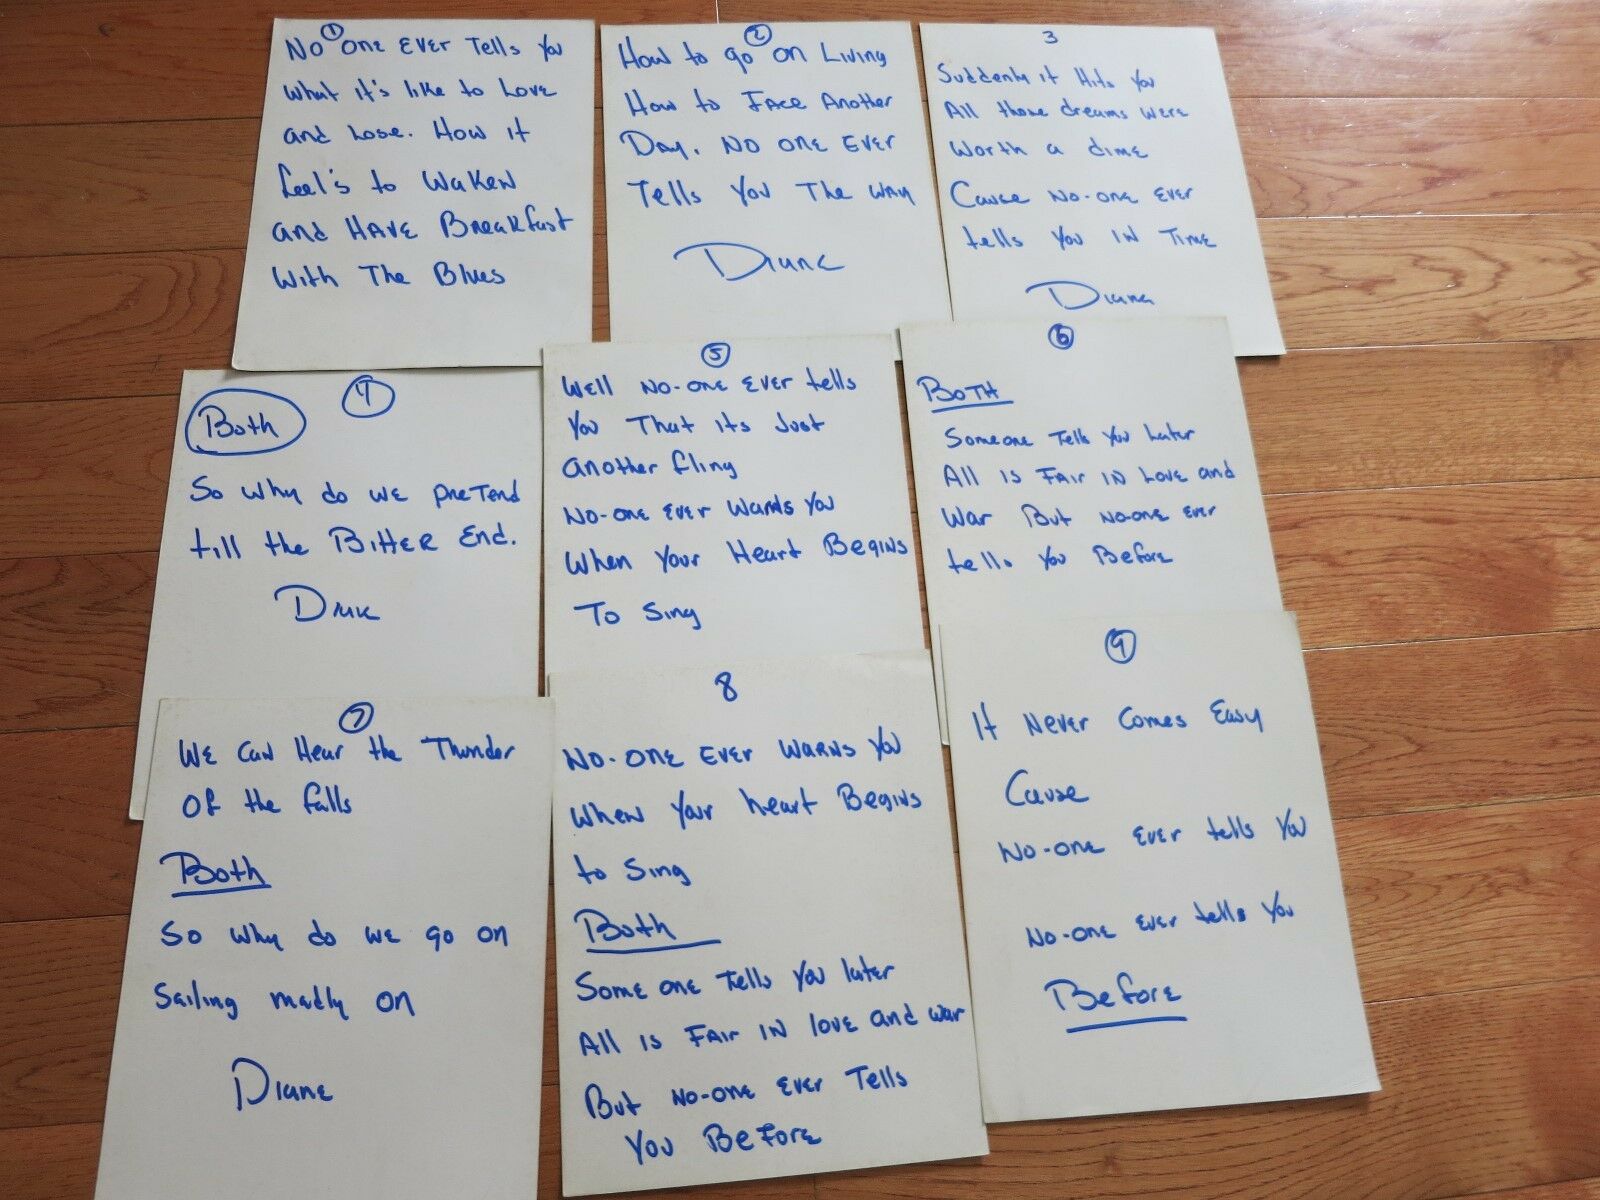 1
No one Ever Tells You
What it's like to Love
and Lose. How it
feel's to Waken
and Have Breakfast
With The Blues
2
How to go on Living
How to Face Another
Day. No one Ever
Tells You The Way
Diane
3
Suddenly it Hits You
All those dreams were
Worth a dime
Cause No-one Ever
tells You in Time
Diane
4
Both
So Why do we preTend
till the Bitter End.
Diane
5
Well No-one Ever tells
You That its Just
another fling
No-one Ever Warnds You
When Your Heart Begins
To Sing
6
BOTH
Someone Tells You Later
All is Fair in Love and
War But No-one Ever
tells You Before
7
We Can Hear the Thunder
Of the falls
Both
So Why do we go on
Sailing madly on
Diane
8
No-one Ever Warns You
When Your heart Begins
to Sing
Both
Some one Tells You later
All is Fair in love and war
But No-one Ever Tells
You Before
9
It Never Comes Easy
Cause
No-one Ever tells You
No-one Ever tells You
Before